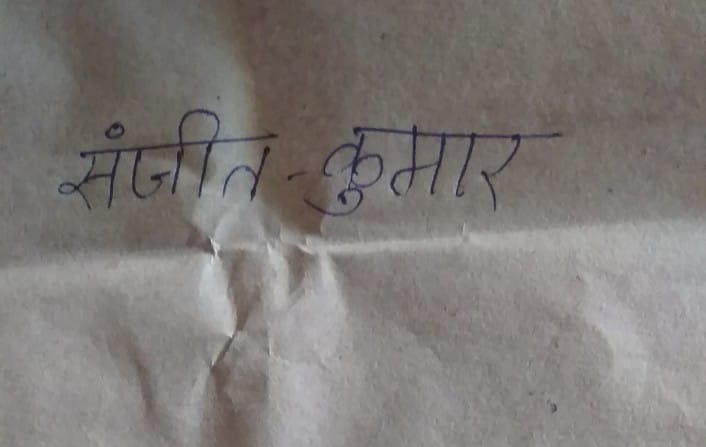 संजीत - कुमार